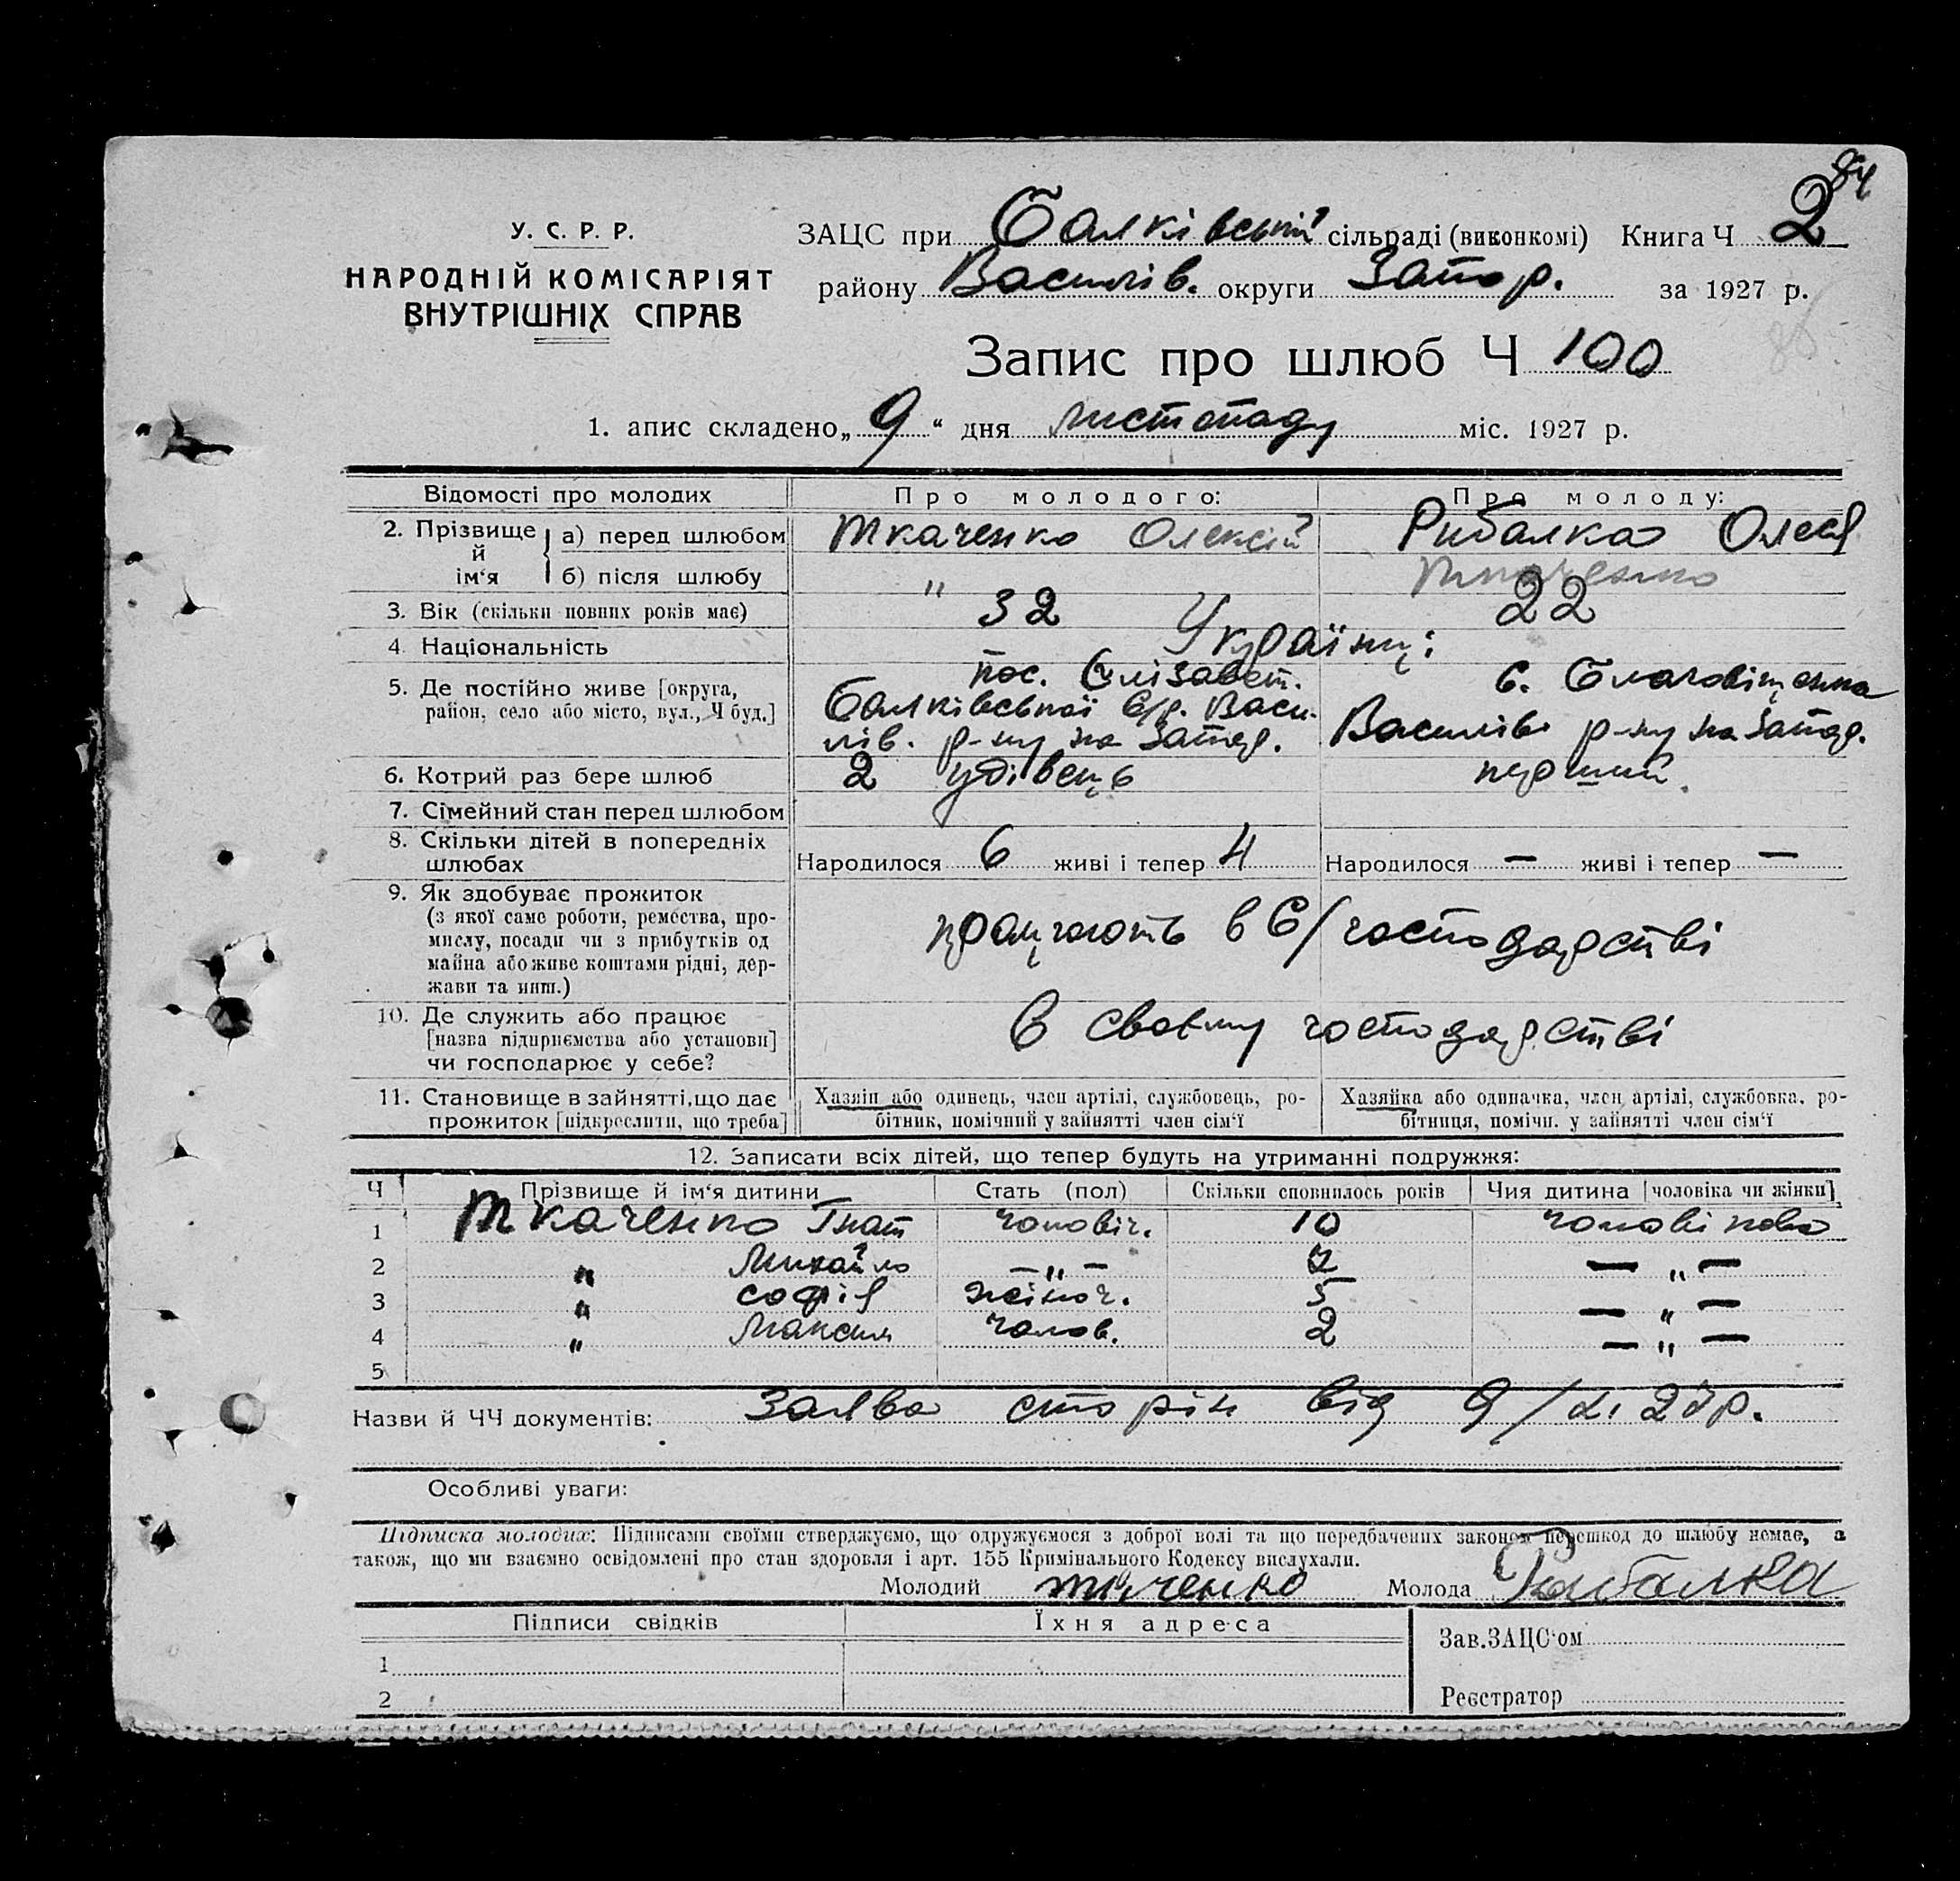 84
У. С. Р. Р.
НАРОДНІЙ КОМІСАРІЯТ
ВНУТРІШНІХ СПРАВ
ЗАЦС при Балківській сільраді (виконкомі) Книга Ч 2
району Василів. округи Запор. за 1927 р.
Запис про шлюб Ч 100
1. апис складено „ 9 “ дня листопаду міс. 1927 р.
Відомості про молодих Про молодого: Про молоду:
2. Прізвище й ім‘я а) перед шлюбом Ткаченко Олексій Рибалка Олеся
б) після шлюбу " Ткаченко
3. Вік (скільки повних років має) 32 22
4. Національність Українці
5. Де постійно живе [округа, район, село або місто, вул., Ч буд.]
пос. Єлізавет.
Балківської с/р. Васи-
лів. р-ну на Запор.
с. Благовіщенка
Василів. р-ну на Запор.
6. Котрий раз бере шлюб 2 удівець перший
7. Сімейний стан перед шлюбом
8. Скільки дітей в попередніх шлюбах Народилося 6 живі і тепер 4 Народилося — живі і тепер —
9. Як здобуває прожиток
(з якої саме роботи, ремества, про-
мислу, посади чи з прибутків од
майна або живе коштами рідні, дер-
жави та инш.)
працюють в с/господарстві
10. Де служить або працює
[назва підприємства або установи]
чи господарює у себе?
в своєму господарстві
11. Становище в зайнятті, що дає
прожиток [підкреслити, що треба]
Хазяїн або одинець, член артілі, службовець, ро-
бітник, помічний у зайнятті член сім‘ї
Хазяйка або одиначка, член артілі, службовка, ро-
бітниця, помічн. у зайнятті член сім‘ї
12. Записати всіх дітей, що тепер будуть на утриманні подружжя:
Ч Прізвище й ім‘я дитини Стать (пол) Скільки сповнилось років Чия дитина [чоловіка чи жінки]
1 Ткаченко Гнат чоловіч. 10 чоловікова
2 " Михайло — „ — 7 — „ —
3 " Софія жіноч. 5 — " —
4 " Максим чолов. 2 — " —
5
Назви й ЧЧ документів: Заява сторін від 9/XI 27р.
Особливі уваги:
Підписка молодих: Підписами своїми стверджуємо, що одружуємося з доброї волі та що передбачених законом перешкод до шлюбу немає, а
також, що ми взаємно освідомлені про стан здоровля і арт. 155 Кримінального Кодексу вислухали.
Молодий Ткаченко Молода Рибалка
Підписи свідків Їхня адреса
Зав.ЗАЦС‘ом
1
2
Реєстратор